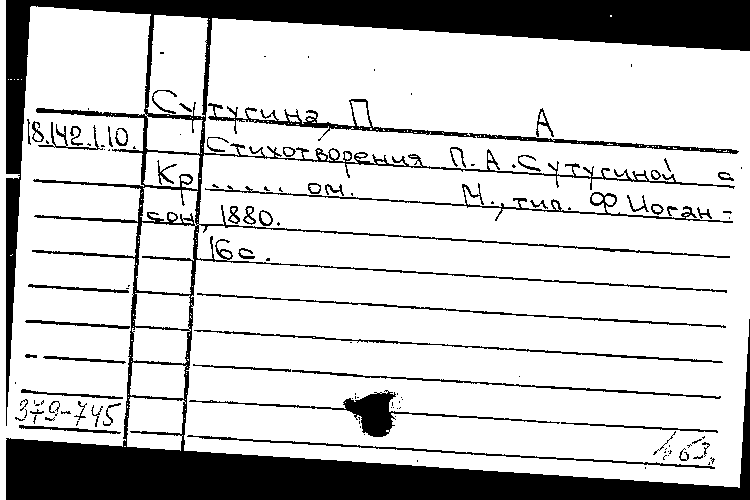 Сутугина, П А
18.142.1.10.
Стихотворения П.А.Сутугиной с
Кр ...... ом. М., тип. Ф.Иоган-
сон, 1880.
16с.
379-745